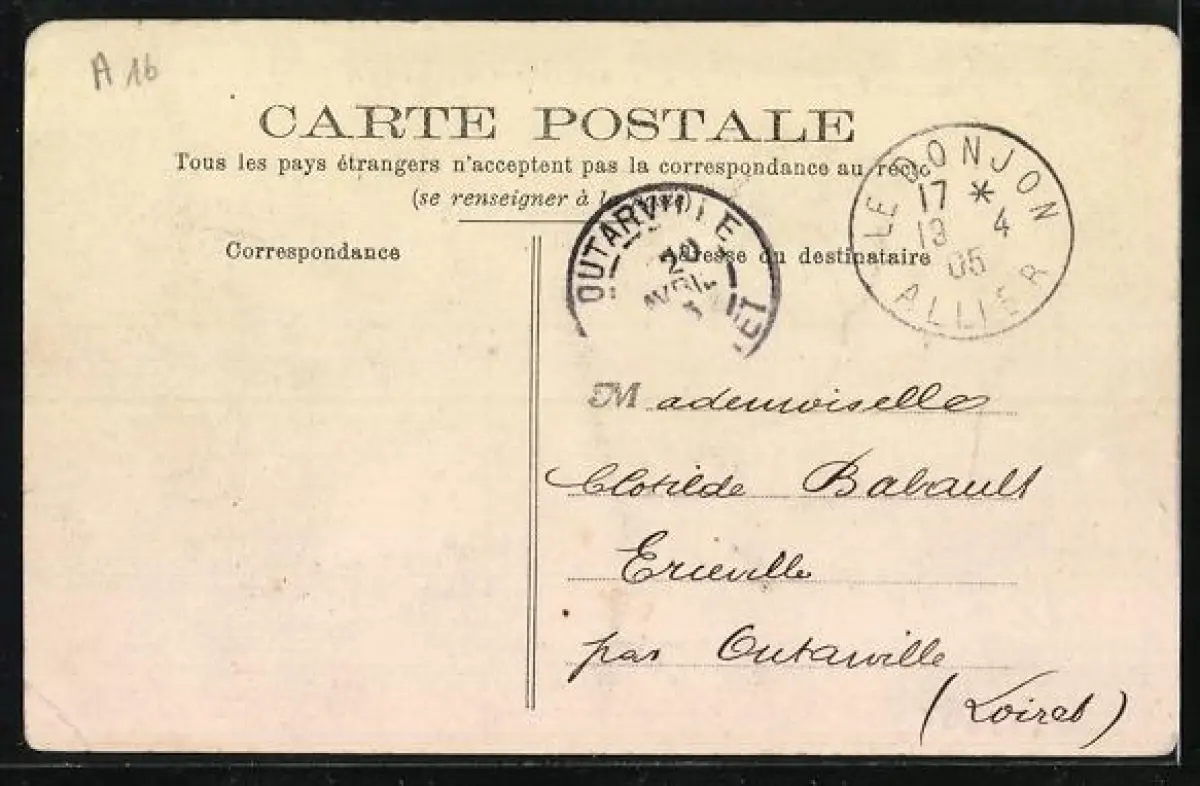 A 16
CARTE POSTALE
Tous les pays étrangers n'acceptent pas la correspondance au recto
(se renseigner à la poste)
LE DONJON
17 *
19 4
05
ALLIER
OUTARVILLE
20
AVRIL
Correspondance
Adresse du destinataire
Mademoiselle
Clotilde Babault
Erceville
par Outarville
(Loiret)